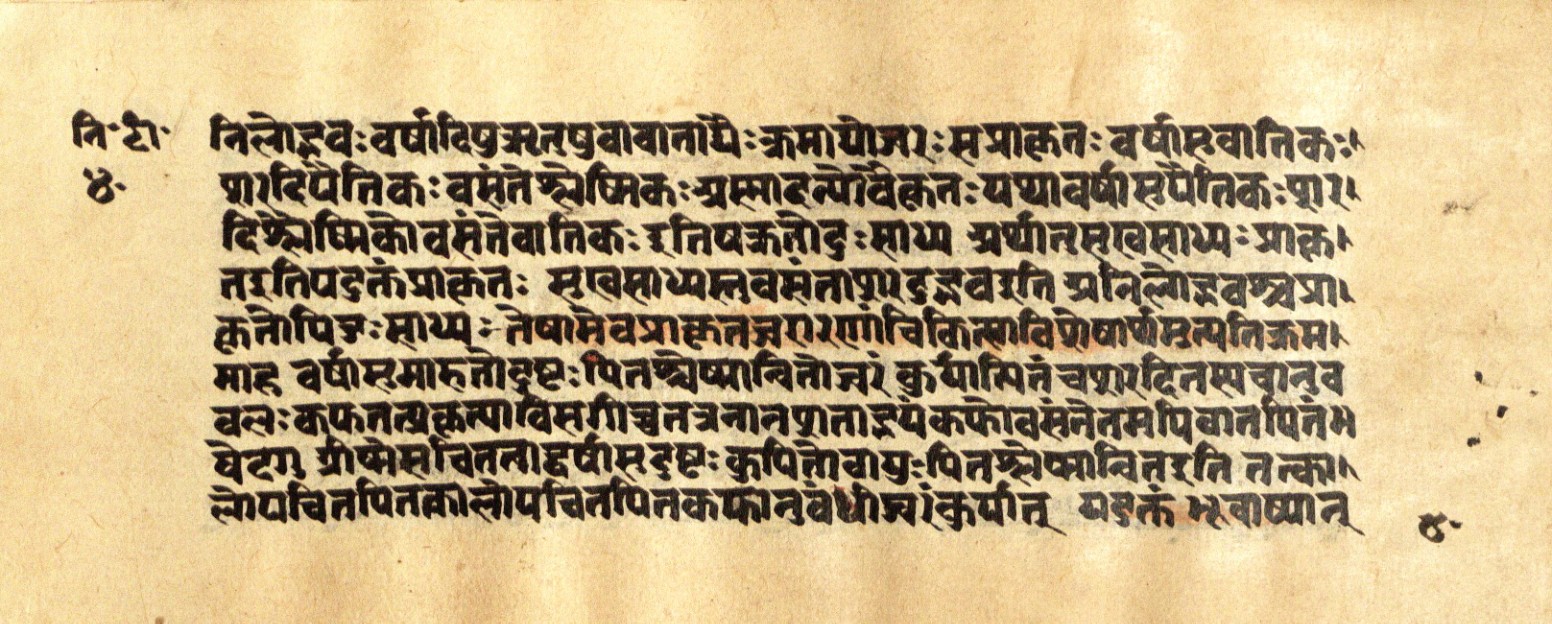 नि॰ टी॰
४॰
निलोद्भवः वर्षादिषु ऋतुषु वा वाताद्यैः क्रमाद्यो ज्वरः स प्राकृतः वर्षासु वातिकः
शरदि पैत्तिकः वसंते श्लेष्मिकः अस्मादन्यो वैकृतः यथा वर्षासु पैतिकः शर
दि श्लैष्मिको वसंते वातिकः इति दुःसाध्य अर्थात् सुखसाध्यः प्राकृ
त इति यदुक्तं प्राकृतः सुखसाध्यस्तु वसंतशरदुद्भव इति अनिलोद्भवश्च प्रा
कृतोपि दुःसाध्यः तेषामेव प्राकृतज्वराणां चिकित्साविशेषार्थमुत्पतिक्रम
माह वर्षासु मारुतो दुष्टः पित्तश्लेष्मान्वितो ज्वरं कुर्यात्पित्तं च शरदि तस्य चानुब
बलः कफ तत्प्रकृत्या विसर्गाच्च तत्र नानशनाद्भयं कफो वसंते तमपि वातपित्तं भ
वेदनु ग्रीष्मे संचित वर्षासु दुष्टः कुपितो वायुः पित्तश्लेष्मान्वित इति तत्का
लोपचितपित्त कालोपचितपित्तकफानुबंधी ज्वरं कुर्यात् यदुक्तं भूबाष्पात्
४॰